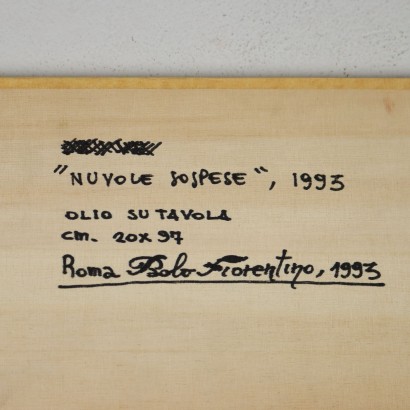 "NUVOLE SOSPESE", 1993
OLIO SU TAVOLA
cm. 20x97
Roma Paolo Fiorentino, 1993